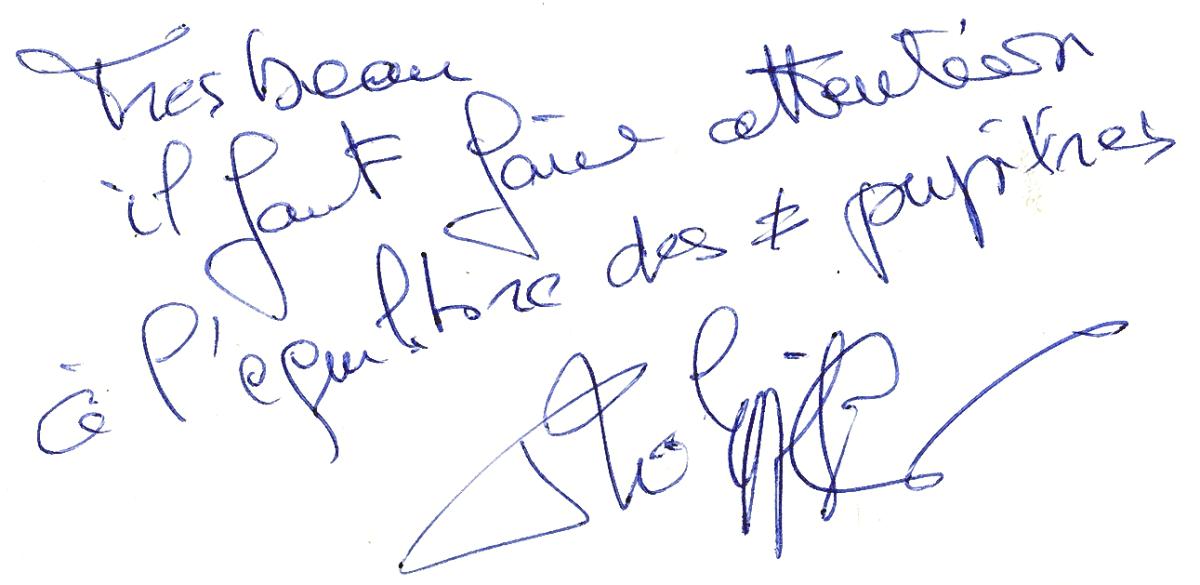 Tres beau
il faut faire attention
à l'equilibre des ≠ pupitres